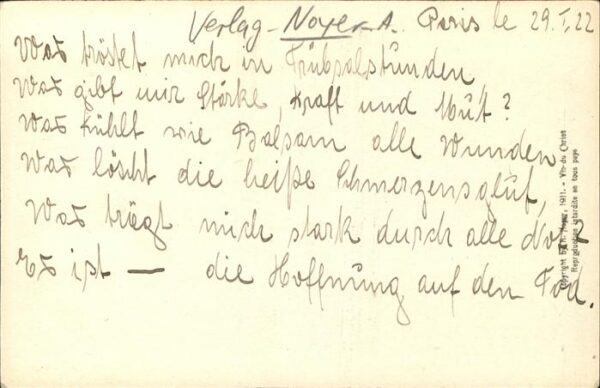 Verlag - Noyer A. Paris le 29.I.22
Was tröstet mich in Trübsalstunden
Was gibt mir Stärke, Kraft und Mut?
Was kühlt wie Balsam alle Wunden
Was löscht die heiße Schmerzensglut,
Was trägt mich stark durch alle Not,
Es ist — die Hoffnung auf den Tod.
Copyright by 1911. - Vie du Christ
Reproduction interdite en tous pays